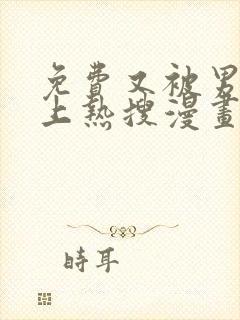 免費又被男
上熱搜漫畫
時耳